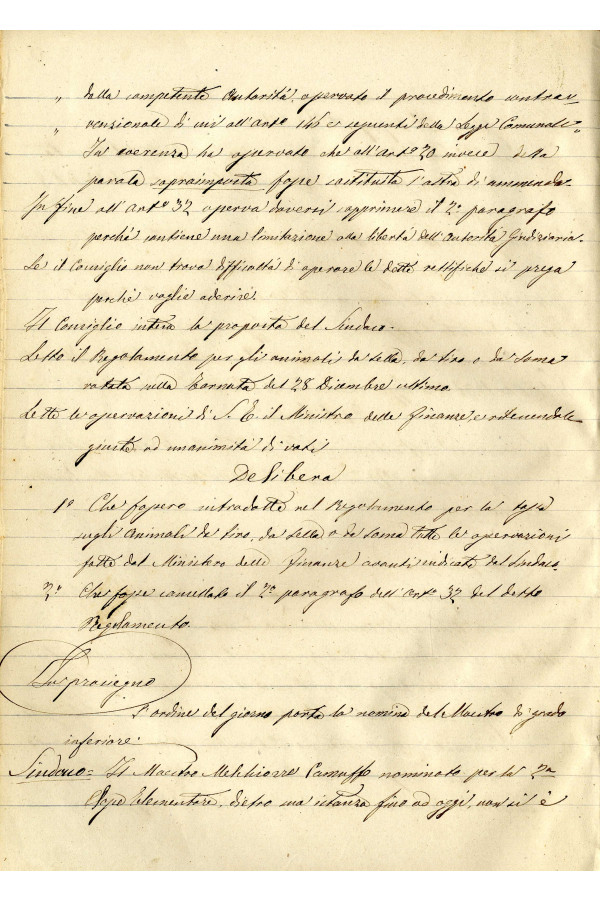 „ dalla competente Autorità, osservato il procedimento contrav-
„ venzionale di cui all'arto 146 e seguenti della Legge Comunale„
In coerenza ha osservato che all'Arto 30 invece della
parola sopraimposta fosse sostituita l'altra di ammenda.
In fine all'Arto 32 osserva doversi opprimere il 2o paragrafo
perché contiene una limitazione alla libertà dell'Autorità Giudiziaria.
Se il Consiglio non trova difficoltà di operare le dette rettifiche si prega
perché voglia aderire.
Il Consiglio intesa la proposta del Sindaco.
Letto il Regolamento per gli animali da sella, da tiro o da soma
votato nella tornata del 28 Dicembre ultimo
Lette le osservazioni di S. E. il Ministro delle Finanze, e ritenendole
giuste ad unanimità di voti
Delibera
1o Che fossero introdotte nel Regolamento per la tassa
sugli Animali da tiro, da sella o da soma tutte le osservazioni
fatte dal Ministero delle Finanze avanti indicate dal Sindaco.
2o Che fosse cancellato il 2o paragrafo dell'Arto 32 del detto
Regolamento.
In prosieguo
L'ordine del giorno porta la nomina del Maestro di grado
inferiore:
Sindaco= Il Maestro Melchiorre Camuffo nominato per la 2a
Classe Elementare, dietro sua istanza fino ad oggi, non si è